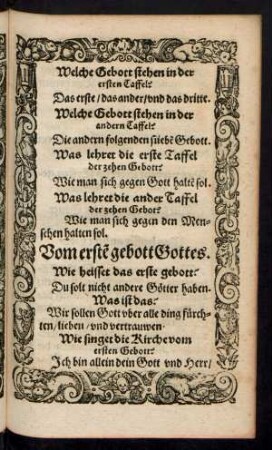 Welche Gebott stehen in der
ersten Taffel?
Das erste/das ander/vnd das dritte.
Welche Gebott stehen in der
andern Taffel?
Die andern folgenden siebẽ Gebott.
Was lehret die erste Taffel
der zehen Gebott?
Wie man sich gegen Gott haltẽ sol.
Was lehret die ander Taffel
der zehen Gebot?
Wie man sich gegen den Men-
schen halten sol.
Vom erstẽ gebott Gottes.
Wie heisset das erste gebott?
Du solt nicht andere Götter haben.
Was ist das?
Wir sollen Gott vber alle ding fürch-
ten/lieben/vnd vertrauwen.
Wie singet die Kirche vom
ersten Gebott?
Ich bin allein dein Gott vnd Herr/